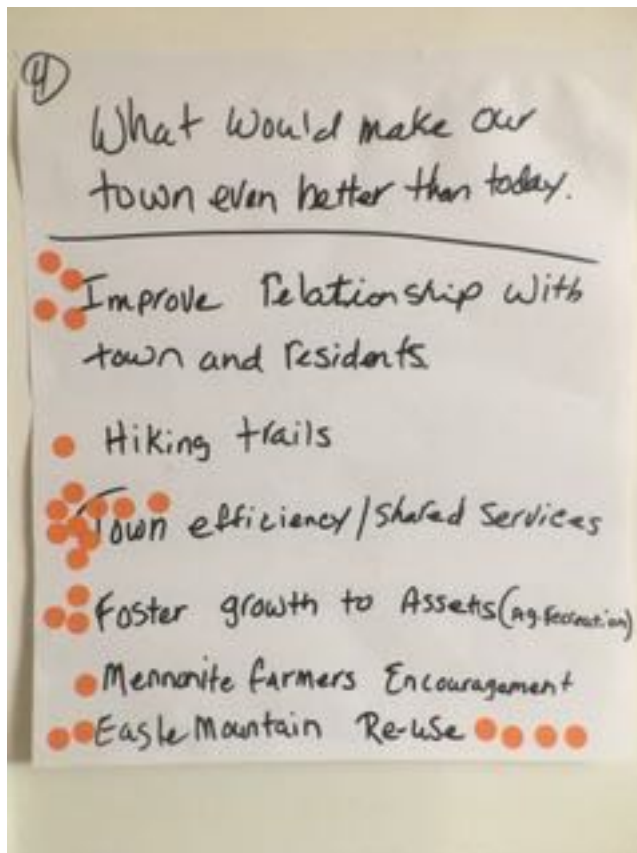 4
What would make our
town even better than today.
Improve relationship with
town and residents
Hiking trails
Town efficiency/shared services
Foster growth to Assets (ag. recreation)
Mennonite farmers Encouragement
Eagle Mountain Re-use